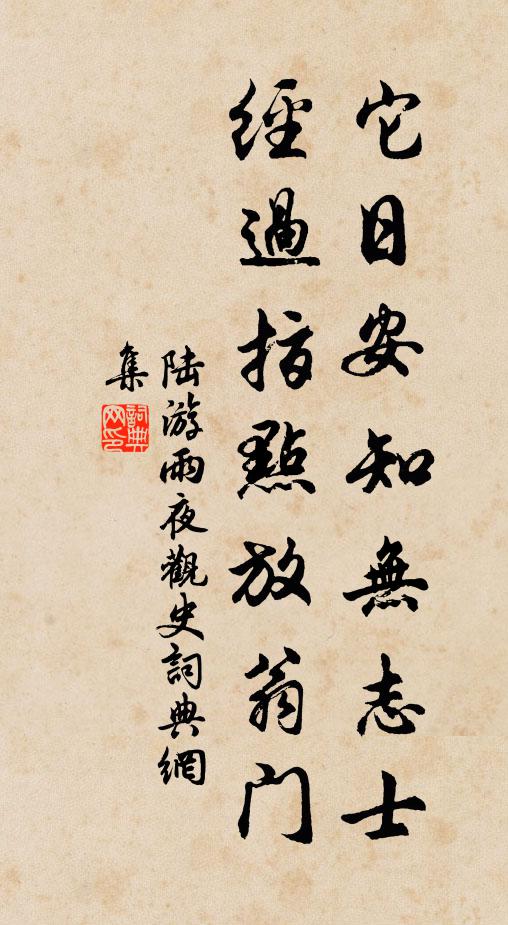 它日安知無志士
經過指點放翁门
陆游雨夜觀史詞典網
集
詞典
网印